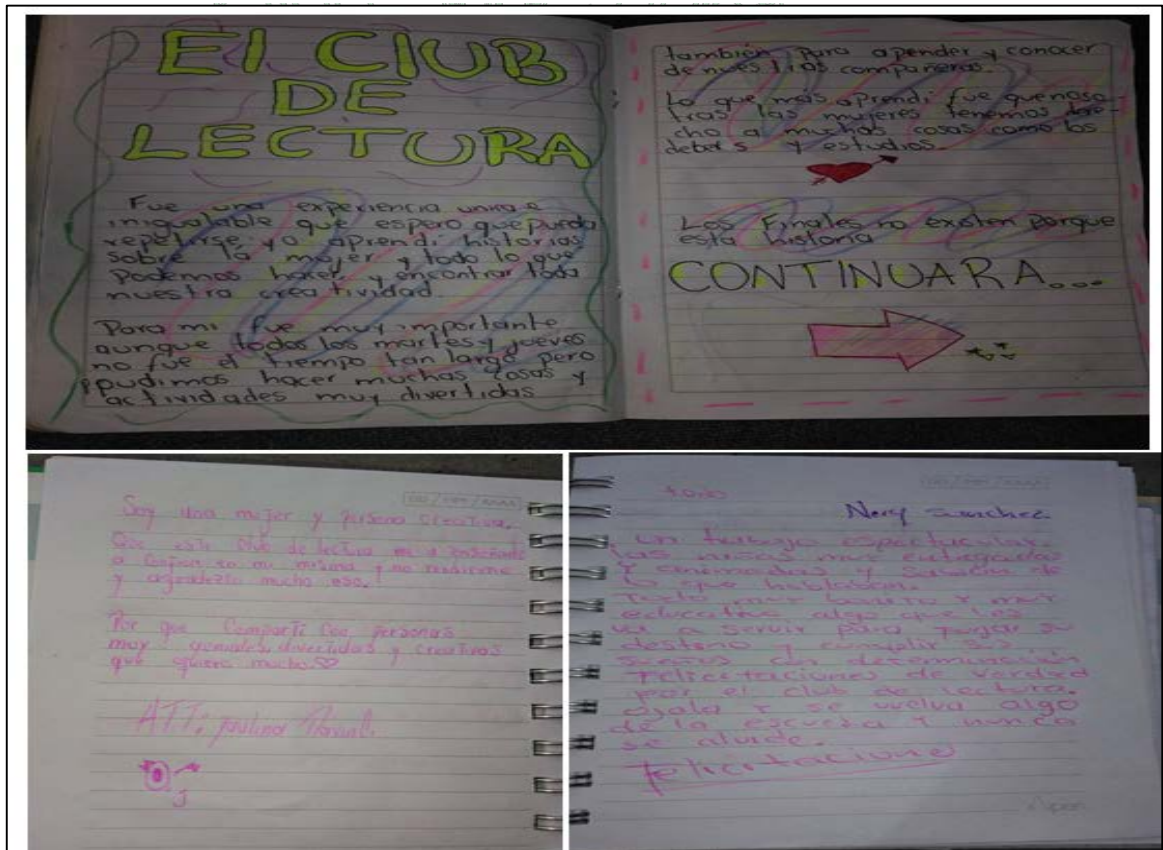 El ClUB
DE
LECTURA
Fue una experiencia unica e
inigualable que espero que pueda
repetirse, yo aprendi historias
sobre la mujer y todo lo que
Podemos hacer y encontrar toda
nuestra creatividad.
Para mi fue muy importante
aunque todos los martes y jueves
no fue el tiempo tan largo pero
pudimos hacer muchas cosas y
actividades muy divertidas
también para apender y conocer
de nuestras compañeras.
Lo que mas aprendi fue que noso-
tras las mujeres tenemos dere-
cho a muchas cosas como los
debers y estudios.
Los Finales no existen porque
esta historia
CONTINUARA...
Soy una mujer y persona creativa.
Que este Club de lectura me a enseñado
a confiar en mi misma y no rendirme
y agradezco mucho eso!
Por que Comparti Con personas
muy geniales, divertidas y creativas
que quiero mucho
ATT: paulina
Nery Sanchez
un trabajo espectacular.
las niñas muy entregadas
Y animadas y sabian de
lo que hablaban.
Todo muy bonito Y muy
educativo algo que les
va a servir para su
destino y cumplir sus
sueños con determinación
Felicitaciones de verdad
por el club de lectura.
Ojala Y se vuelva algo
de la escuela Y nunca
se olvide.
Felicitacione